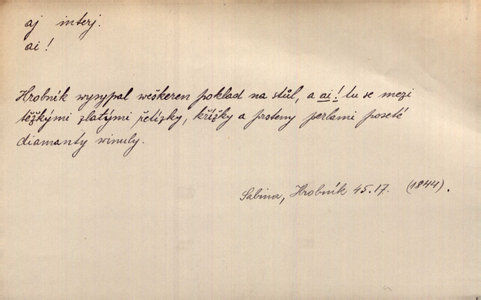 aj interj.
ai!
Hrobník vysypal veškeren poklad na stůl, a ai! tu se mezi
těžkými zlatými řetízky, křížky a prsteny perlami poseté
diamanty vinuly.
Sabina, Hrobník 45.17. (1844).